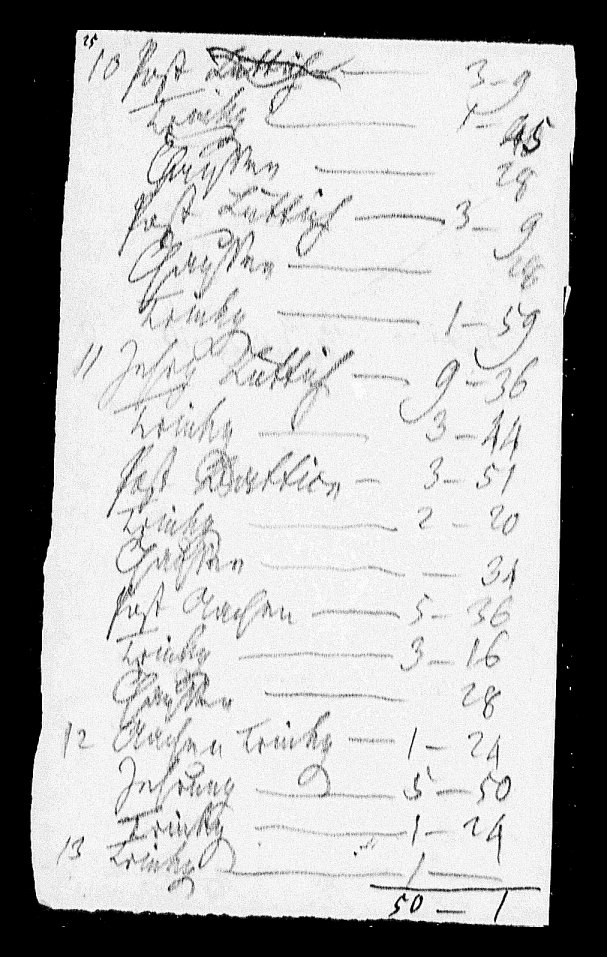 25
10 Post Lüttich — 3 - 9
Trinkg — 1 - 45
Chaussee — 28
Post Lüttich — 3 - 9
Chaussee — 28
Trinkg — 1 - 59
11 Zehrg Lüttich — 9 - 36
Trinkg — 3 - 44
Post Battice — 3 - 51
Trinkg — 2 - 20
Chaussee — 34
Post Aachen — 5 - 36
Trinkg — 3 - 16
Chaussee — 28
12 Aachen Trinkg — 1 - 24
Zehrung — 5 - 50
Trinkg — 1 - 24
13 Trinkg — 1 —
50 — 1